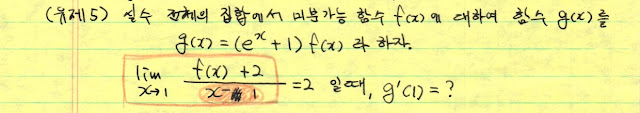 (유제5) 실수 전체의 집합에서 미분가능 함수 f(x)에 대하여 함수 g(x)를
g(x) = (eˣ + 1) f(x) 라 하자.
lim x→1 f(x) + 2 / x - 1 = 2 일때, g'(1) = ?